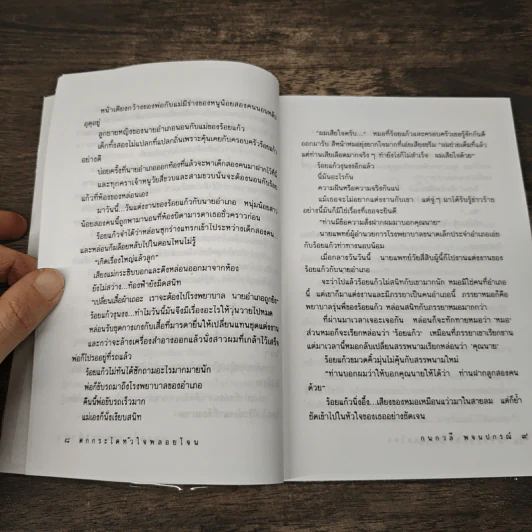 หน้าเตียงกว้างของพ่อกับแม่มีร่างของหนูน้อยสองคนนอนหลับ
อุตุอยู่
ลูกชายหญิงของนายอำเภอนอนกับแม่ของร้อยแก้ว
เด็กทั้งสองไม่แปลกที่แปลกถิ่นเพราะคุ้นเคยกับครอบครัวร้อยแก้ว
อย่างดี
บ่อยครั้งที่นายอำเภอออกท้องที่แล้วจะพาเด็กสองคนมาฝากไว้ที่นี่
และทุกคราเจ้าหนูวัยสี่ขวบและสามขวบนั่นจะต้องนอนกับร้อย
แก้วที่ห้องของหล่อนเอง
มาวันนี้...วันแต่งงานของร้อยแก้วกับนายอำเภอ หนุ่มน้อยสาว
น้อยสองคนนี้ถูกพามานอนที่ห้องยึดามารดาเธอชั่วคราวก่อน
ร้อยแก้วจำได้ว่าหล่อนซุกร่างแทรกเข้าไประหว่างเด็กสองคน
และหล่อนก็ผล็อยหลับไปในตอนไหนไม่รู้
"เกิดเรื่องใหญ่แล้วลูก"
เสียงแม่กระซิบบอกและดึงหล่อนออกมาจากห้อง
ยังไม่สว่าง...ท้องฟ้ายังมืดสนิท
"เปลี่ยนเสื้อผ้าเถอะ เราจะต้องไปโรงพยาบาล นายอำเภอถูกยิง"
ร้อยแก้วงุนงง...ทำไมวันนี้มันจึงมีเรื่องอะไรให้วุ่นวายไปหมด
หล่อนรับชุดกางเกงกับเสื้อที่มารดายื่นให้เปลี่ยนแทนชุดแต่งงาน
และกว่าจะล้างเครื่องสำอางออกแล้วนั่งสางผมที่เกล้าไว้เสร็จ
พ่อก็ไปรออยู่ที่รถแล้ว
ร้อยแก้วไม่ทันได้ซักถามอะไรมากมายนัก
พ่อก็ขับรถมาถึงโรงพยาบาลของอำเภอ
คืนนี้พ่อขับรถเร็วมาก
แม่เองก็นั่งเงียบสนิท
๘ ตกกระไดหัวใจพลอยโจน
"ผมเสียใจครับ..." หมอที่ร้อยแก้วและครอบครัวเธอรู้จักกันดี
ออกมารับ สีหน้าหมออยู่ยากใจมากที่เอ่ยเสียงขรึม "ผมช่วยเต็มที่แล้ว
แต่ท่านเสียเลือดมากจริงๆ หัวยังไงก็ไม่สำเร็จ ผมเสียใจด้วย"
ร้อยแก้วงุนงงอีกแล้ว
นี่มันอะไรกัน
ความฝันหรือความจริงกันแน่
แม้เธอจะไม่อยากแต่งงานกับเขา แต่จู่ๆ มาได้รับรู้ข่าวร้าย
อย่างนี้มันก็มิใช่เรื่องที่เธอจะยินดี
"ท่านมีข้อความสั่งฝากผมมาบอกคุณนาย"
นายแพทย์ผู้อำนวยการโรงพยาบาลขนาดเล็กประจำอำเภอเอ่ย
กับร้อยแก้วท่าทางนอบน้อม
เมื่อกลางวันวันนี้ นายแพทย์วัยสี่สิบผู้นี้ก็ไปงานแต่งงานของ
ร้อยแก้วกับนายอำเภอ
จะว่าไปแล้วร้อยแก้วไม่สนิทกับเขามากนัก หมอมิใช่คนที่อำเภอ
นี้ แต่เขาก็มาแต่งงานและมีภรรยาเป็นคนอำเภอนี้ ภรรยาหมอก็คือ
พยาบาลรุ่นพี่ของร้อยแก้ว หล่อนสนิทกับภรรยาหมอมากกว่า
ที่ผ่านมาเวลาเจอะเจอกัน หล่อนก็จะทักทายหมอว่า 'หมอ'
ส่วนหมอก็จะเรียกหล่อนว่า 'ร้อยแก้ว' เหมือนที่ภรรยาเขาเรียกขาน
แต่มาเวลานี้หมอกลับเปลี่ยนสรรพนามเรียกหล่อนว่า 'คุณนาย'
ร้อยแก้วขมวดคิ้วมุ่นไม่คุ้นกับสรรพนามใหม่
"ท่านบอกผมว่าให้บอกคุณนายให้ได้ว่า ท่านฝากลูกสองคน
ด้วย"
ร้อยแก้วนิ่งอึ้ง...เสียงของหมอเหมือนแว่วมาในสายลม แต่ก็ย้ำ
ชัดเข้าไปในหัวใจของเธออย่างชัดเจน
กนกวลี พจนปกรณ์ ๙